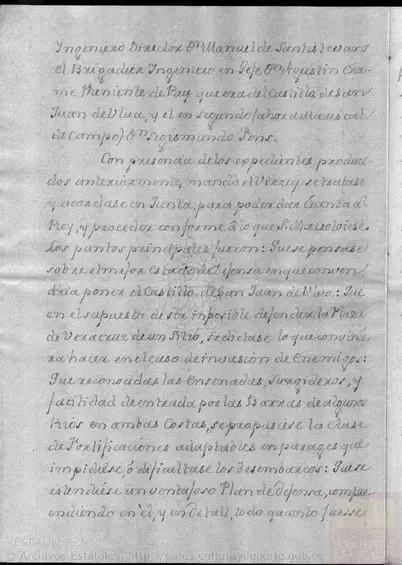 Ingeniero Director Dn. Manuel de Santistevan:
el Brigadier Ingeniero en Gefe Dn. Agustin Cra-
me Theniente de Rey que era del Castillo de San
Juan de Ulua, y el en segundo (ahora Mariscal
de Campo) Dn. Segismundo Pons.
Con presencia de los expedientes produci-
dos anteriormente, mandó el Virrey se tratase
y acordase en Junta, para poder dar Cuenta al
Rey, y proceder conforme á lo que S. M. resolviese.
Los puntos principales fueron: Que se pensase
sobre el mejor estado de defensa en que conven-
dria poner el Castillo de San Juan de Ulua: Que
en el supuesto de ser imposible defender la Plaza
de Veracruz de un Sitio, se dictase lo que convini-
era hacer en el caso de invasion de Enemigos:
Que reconocidas las Ensenadas, Surgideros, y
facilidad de entrada por las Barras de algunos
Rios en ambas Costas, se propusiese la Clase
de Fortificaciones adaptables en parages que
impidiese, ó dificultase los desembarcos: Que se
estendiese un ventajoso Plan de Defensa, compre-
endiendo en él, y en Detall, todo quanto fuesse
ESTADO,
© Archivos Estatales, http://pares.culturaydeporte.gob.es